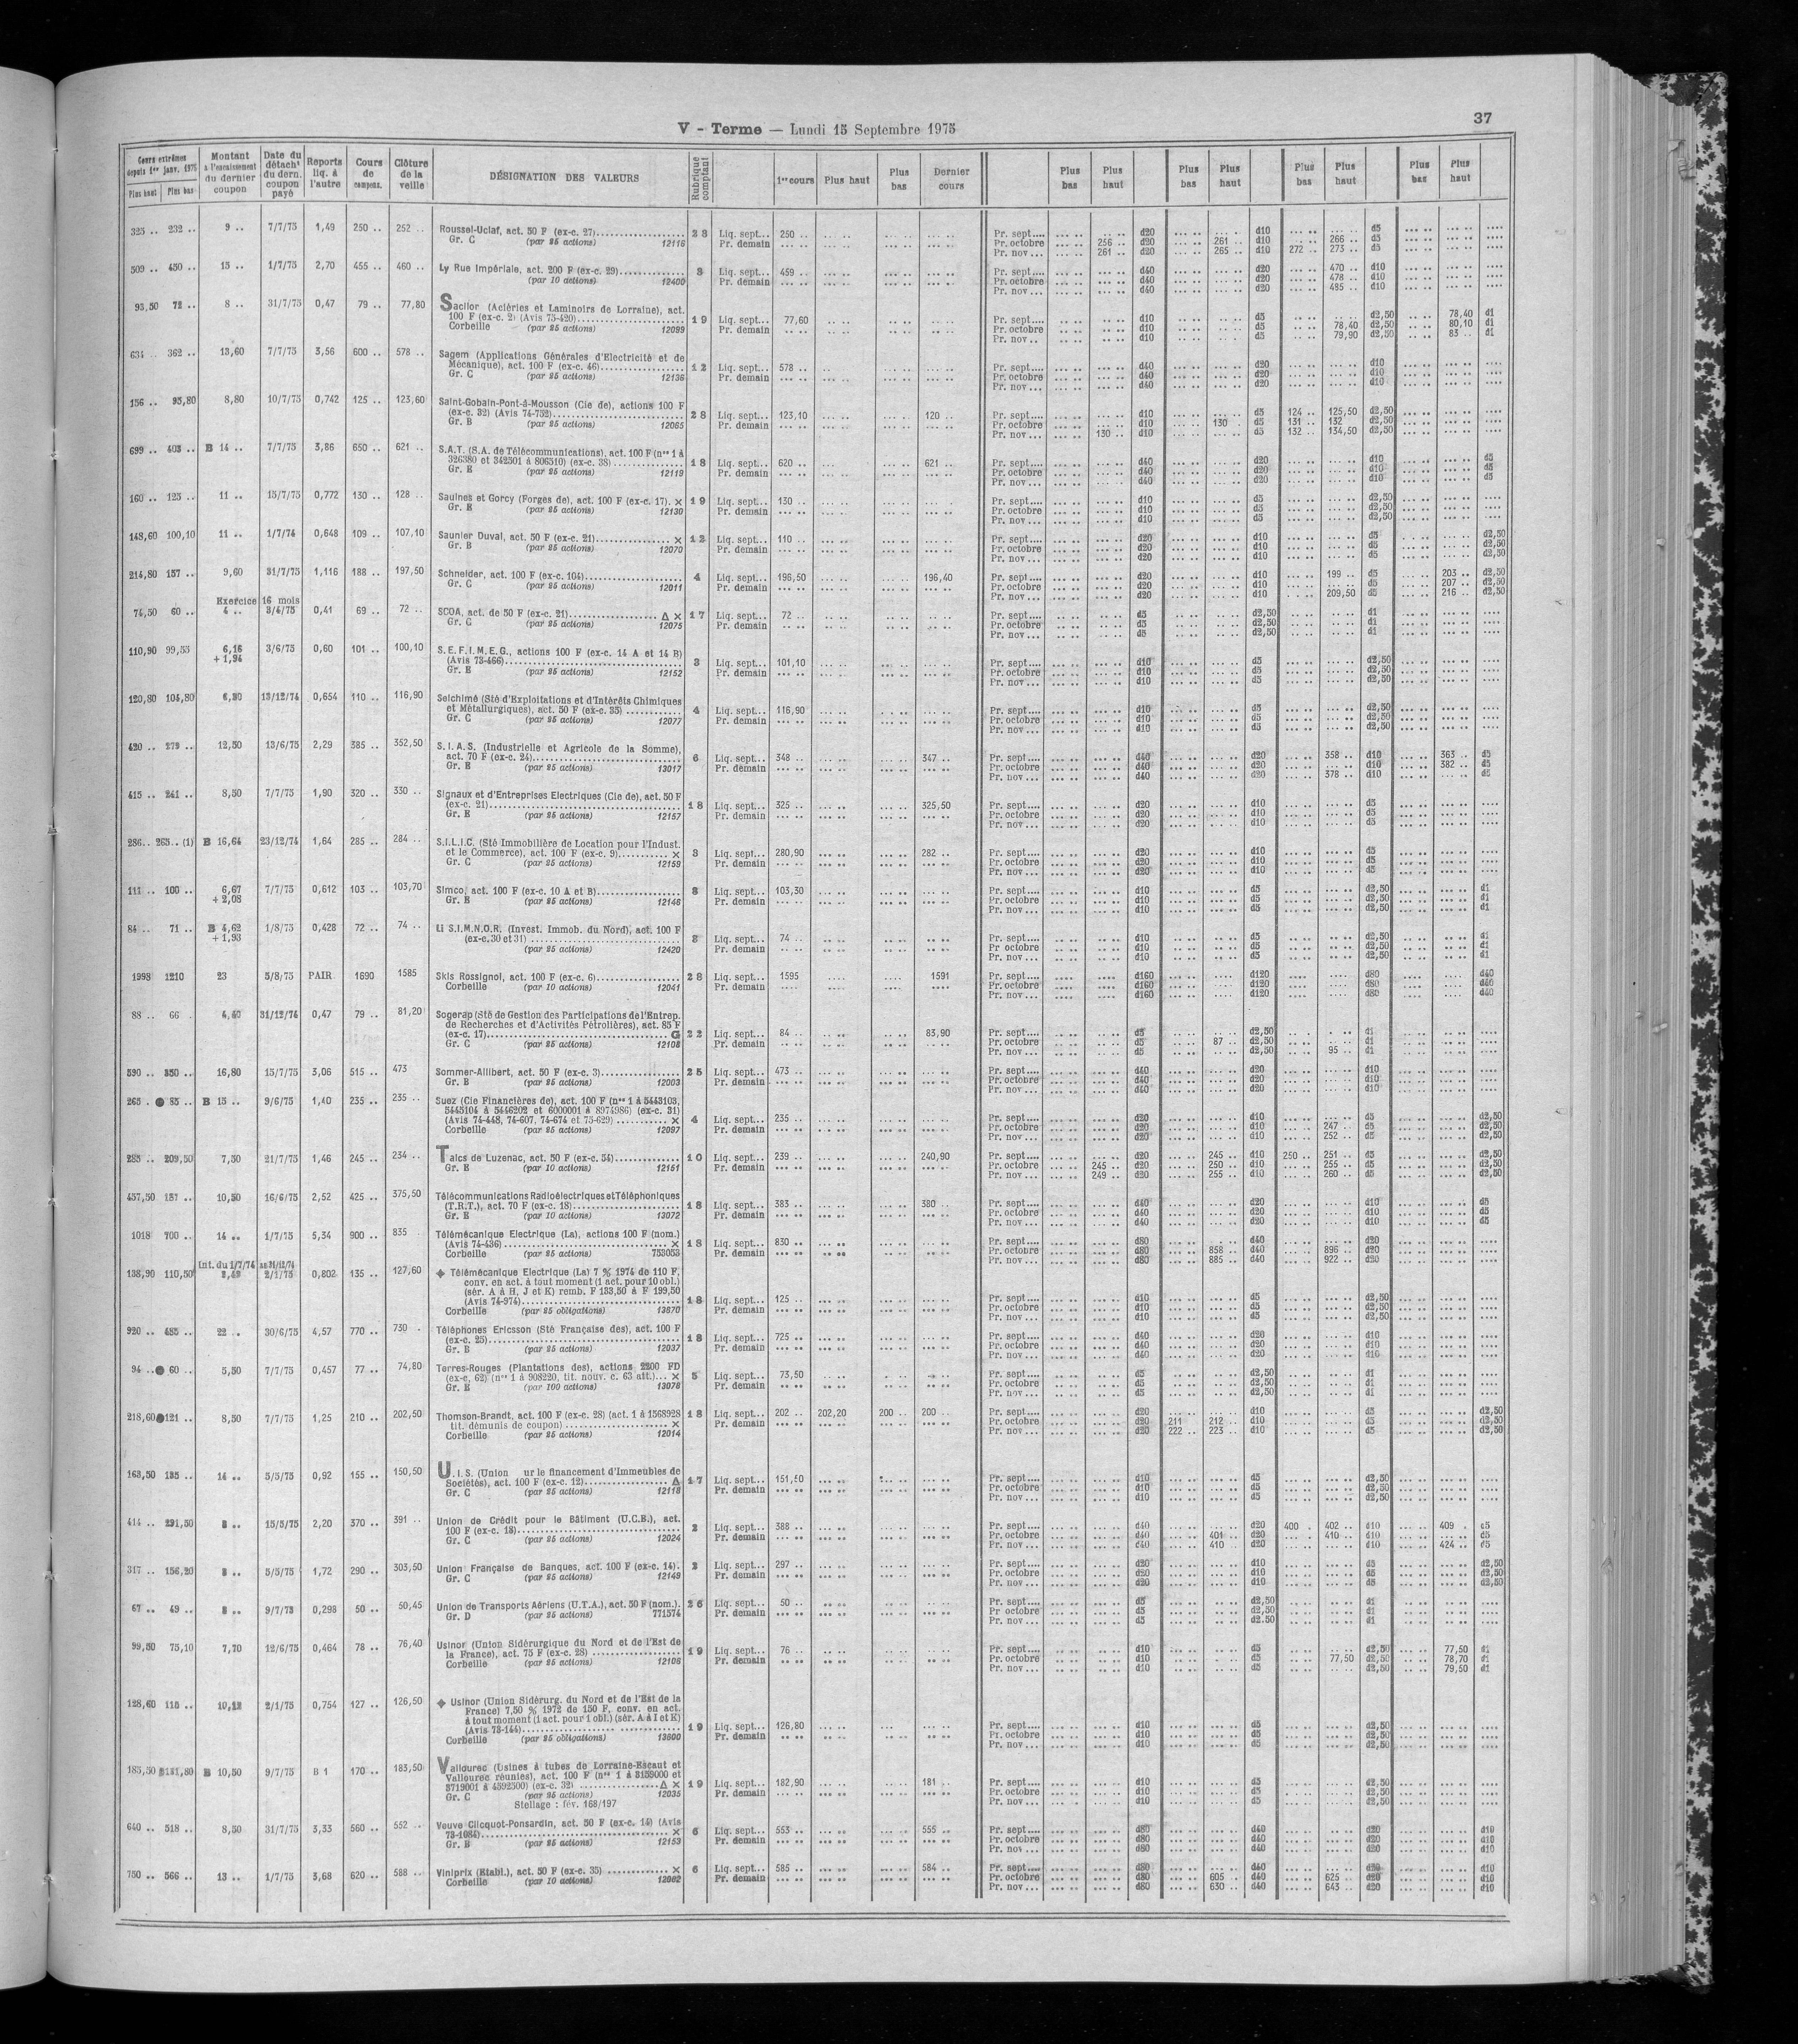 V - Terme — Lundi 15 Septembre 1975
37
Cours extrêmes depuis 1er janv. 1975 Plus haut Plus bas | Montant à l'encaissement du dernier coupon | Date du détacht du dern. coupon payé | Reports liq. à l'autre | Cours de compens. | Clôture de la veille | DÉSIGNATION DES VALEURS | Rubrique comptant | 1er cours | Plus haut | Plus bas | Dernier cours | Plus bas | Plus haut | Plus bas | Plus haut | Plus bas | Plus haut | Plus bas | Plus haut
325 .. 232 .. 9 .. 7/7/75 1,49 250 .. 252 .. Roussel-Uclaf, act. 50 F (ex-c. 27) 28 Liq. sept... 250 .. Pr. sept.... d20 d10 d5
Gr. C (par 25 actions) 12116 Pr. demain Pr. octobre 256 .. d20 261 .. d10 266 .. d5
Pr. nov... 261 .. d20 265 .. d10 272 .. 273 .. d5
509 .. 450 .. 15 .. 1/7/75 2,70 455 .. 460 .. Ly Rue Impériale, act. 200 F (ex-c. 29) 3 Liq. sept... 459 .. Pr. sept.... d40 d20 470 .. d10
(par 10 actions) 12400 Pr. demain Pr. octobre d40 d20 478 .. d10
Pr. nov... d40 d20 485 .. d10
93,50 72 .. 8 .. 31/7/75 0,47 79 .. 77,80 Sacilor (Aciéries et Laminoirs de Lorraine), act.
100 F (ex-c. 2) (Avis 75-420) 19 Liq. sept... 77,60 Pr. sept.... d10 d5 d2,50 78,40 d1
Corbeille (par 25 actions) 12099 Pr. demain Pr. octobre d10 d5 78,40 d2,50 80,10 d1
Pr. nov.. d10 d5 79,90 d2,50 83 .. d1
634 .. 362 .. 13,60 7/7/75 3,56 600 .. 578 .. Sagem (Applications Générales d'Electricité et de
Mécanique), act. 100 F (ex-c. 46) 12 Liq. sept... 578 .. Pr. sept.... d40 d20 d10
Gr. C (par 25 actions) 12136 Pr. demain Pr. octobre d40 d20 d10
Pr. nov... d40 d20 d10
156 .. 95,80 8,80 10/7/75 0,742 125 .. 123,60 Saint-Gobain-Pont-à-Mousson (Cie de), actions 100 F
(ex-c. 32) (Avis 74-752) 28 Liq. sept... 123,10 120 .. Pr. sept.... d10 d5 124 .. 125,50 d2,50
Gr. B (par 25 actions) 12065 Pr. demain Pr. octobre d10 130 . d5 131 .. 132 d2,50
Pr. nov... 130 .. d10 d5 132 .. 134,50 d2,50
699 .. 403 .. B 14 .. 7/7/75 3,86 650 .. 621 .. S.A.T. (S.A. de Télécommunications), act. 100 F (nos 1 à
326380 et 342301 à 806310) (ex-c. 38) 18 Liq. sept... 620 .. 621 .. Pr. sept.... d40 d20 d10 d5
Gr. E (par 25 actions) 12119 Pr. demain Pr. octobre d40 d20 d10 d5
Pr. nov... d40 d20 d10 d5
160 .. 125 .. 11 .. 15/7/75 0,772 130 .. 128 .. Saulnes et Gorcy (Forges de), act. 100 F (ex-c. 17). × 19 Liq. sept... 130 .. Pr. sept.... d10 d5 d2,50
Gr. E (par 25 actions) 12130 Pr. demain Pr. octobre d10 d5 d2,50
Pr. nov... d10 d5 d2,50
148,60 100,10 11 .. 1/7/74 0,648 109 .. 107,10 Saunier Duval, act. 50 F (ex-c. 21) × 12 Liq. sept... 110 .. Pr. sept.... d20 d10 d5 d2,50
Gr. B (par 25 actions) 12070 Pr. demain Pr. octobre d20 d10 d5 d2,50
Pr. nov... d20 d10 d5 d2,50
214,80 157 .. 9,60 31/7/75 1,116 188 .. 197,50 Schneider, act. 100 F (ex-c. 104) 4 Liq. sept... 196,50 196,40 Pr. sept.... d20 d10 199 .. d5 203 .. d2,50
Gr. C (par 25 actions) 12011 Pr. demain Pr. octobre d20 d10 d5 207 .. d2,50
Pr. nov... d20 d10 209,50 d5 216 .. d2,50
Exercice 16 mois
74,50 60 .. 4 .. 3/4/75 0,41 69 .. 72 .. SCOA, act. de 50 F (ex-c. 21) Δ × 17 Liq. sept... 72 .. Pr. sept.... d5 d2,50 d1
Gr. C (par 25 actions) 12075 Pr. demain Pr. octobre d5 d2,50 d1
Pr. nov... d5 d2,50 d1
110,90 99,55 6,16 + 1,94 3/6/75 0,60 101 .. 100,10 S.E.F.I.M.E.G., actions 100 F (ex-c. 14 A et 14 B)
(Avis 73-466) 3 Liq. sept... 101,10 Pr. sept.... d10 d5 d2,50
Gr. E (par 25 actions) 12152 Pr. demain Pr. octobre d10 d5 d2,50
Pr. nov... d10 d5 d2,50
120,80 104,80 6,30 13/12/74 0,654 110 .. 116,90 Seichimé (Sté d'Exploitations et d'Intérêts Chimiques
et Métallurgiques), act. 50 F (ex-c. 35) 4 Liq. sept... 116,90 Pr. sept.... d10 d5 d2,50
Gr. C (par 25 actions) 12077 Pr. demain Pr. octobre d10 d5 d2,50
Pr. nov... d10 d5 d2,50
420 .. 279 .. 12,50 13/6/75 2,29 385 .. 352,50 S.I.A.S. (Industrielle et Agricole de la Somme),
act. 70 F (ex-c. 24) 6 Liq. sept... 348 .. 347 .. Pr. sept.... d40 d20 358 .. d10 363 .. d5
Gr. E (par 25 actions) 13017 Pr. demain Pr. octobre d40 d20 d10 382 .. d5
Pr. nov... d40 d20 378 .. d10 d5
415 .. 241 .. 8,50 7/7/75 1,90 320 .. 330 .. Signaux et d'Entreprises Electriques (Cie de), act. 50 F
(ex-c. 21) 18 Liq. sept... 325 .. 325,50 Pr. sept.... d20 d10 d5
Gr. E (par 25 actions) 12157 Pr. demain Pr. octobre d20 d10 d5
Pr. nov... d20 d10 d5
286.. 265.. (1) B 16,64 23/12/74 1,64 285 .. 284 .. S.I.L.I.C. (Sté Immobilière de Location pour l'Indust.
et le Commerce), act. 100 F (ex-c. 9) × 3 Liq. sept... 280,90 282 .. Pr. sept.... d20 d10 d5
Gr. C (par 25 actions) 12159 Pr. demain Pr. octobre d20 d10 d5
Pr. nov... d20 d10 d5
111 .. 100 .. 6,67 + 2,08 7/7/75 0,612 103 .. 103,70 Simco, act. 100 F (ex-c. 10 A et B) 3 Liq. sept... 103,30 Pr. sept.... d10 d5 d2,50 d1
Gr. E (par 25 actions) 12146 Pr. demain Pr. octobre d10 d5 d2,50 d1
Pr. nov... d10 d5 d2,50 d1
84 .. 71 .. B 4,62 + 1,93 1/8/75 0,428 72 .. 74 .. Li S.I.M.N.O.R. (Invest. Immob. du Nord), act. 100 F
(ex-c. 30 et 31) 3 Liq. sept... 74 .. Pr. sept.... d10 d5 d2,50 d1
(par 25 actions) 12420 Pr. demain Pr. octobre d10 d5 d2,50 d1
Pr. nov... d10 d5 d2,50 d1
1998 1210 23 5/8/75 PAIR 1690 1585 Skis Rossignol, act. 100 F (ex-c. 6) 28 Liq. sept... 1595 1591 Pr. sept.... d160 d120 d80 d40
Corbeille (par 10 actions) 12041 Pr. demain Pr. octobre d160 d120 d80 d40
Pr. nov... d160 d120 d80 d40
88 .. 66 . 4,40 31/12/74 0,47 79 .. 81,20 Sogerap (Sté de Gestion des Participations de l'Entrep.
de Recherches et d'Activités Pétrolières), act. 85 F
(ex-c. 17) G 22 Liq. sept... 84 .. 83,90 Pr. sept.... d5 d2,50 d1
Gr. C (par 25 actions) 12108 Pr. demain Pr. octobre d5 87 .. d2,50 d1
Pr. nov... d5 d2,50 95 .. d1
590 .. 350 .. 16,80 15/7/75 3,06 515 .. 473 Sommer-Allibert, act. 50 F (ex-c. 3) 25 Liq. sept... 473 .. Pr. sept.... d40 d20 d10
Gr. B (par 25 actions) 12003 Pr. demain Pr. octobre d40 d20 d10
Pr. nov... d40 d20 d10
265 . ● 85 .. B 15 .. 9/6/75 1,40 235 .. 235 .. Suez (Cie Financières de), act. 100 F (nos 1 à 5443103,
5445104 à 5446202 et 6000001 à 8974986) (ex-c. 31)
(Avis 74-448, 74-607, 74-674 et 75-629) × 4 Liq. sept... 235 .. Pr. sept.... d20 d10 d5 d2,50
Corbeille (par 25 actions) 12097 Pr. demain Pr. octobre d20 d10 247 .. d5 d2,50
Pr. nov... d20 d10 252 .. d5 d2,50
285 .. 209,50 7,50 21/7/75 1,46 245 .. 234 .. Talcs de Luzenac, act. 50 F (ex-c. 54) 10 Liq. sept... 239 .. 240,90 Pr. sept.... d20 245 .. d10 250 .. 251 .. d5 d2,50
Gr. E (par 10 actions) 12151 Pr. demain Pr. octobre 245 .. d20 250 .. d10 255 .. d5 d2,50
Pr. nov... 249 .. d20 255 .. d10 260 .. d5 d2,50
457,50 157 .. 10,50 16/6/75 2,52 425 .. 375,50 Télécommunications Radioélectriques et Téléphoniques
(T.R.T.), act. 70 F (ex-c. 18) 18 Liq. sept... 383 .. 380 .. Pr. sept.... d40 d20 d10 d5
Gr. E (par 10 actions) 13072 Pr. demain Pr. octobre d40 d20 d10 d5
Pr. nov... d40 d20 d10 d5
1018 700 .. 14 .. 1/7/75 5,34 900 .. 835 . Télémécanique Electrique (La), actions 100 F (nom.)
(Avis 74-436) × 18 Liq. sept... 830 .. Pr. sept.... d80 d40 d20
Corbeille (par 25 actions) 753053 Pr. demain Pr. octobre d80 858 .. d40 896 .. d20
Pr. nov... d80 885 .. d40 922 .. d20
Int. du 1/7/74 au 31/12/74
138,90 110,50 3,49 2/1/75 0,802 135 .. 127,60 ◆ Télémécanique Electrique (La) 7 % 1974 de 110 F,
conv. en act. à tout moment (1 act. pour 10 obl.)
(sér. A à H, J et K) remb. F 133,50 à F 199,50
(Avis 74-974) 18 Liq. sept... 125 .. Pr. sept.... d10 d5 d2,50
Corbeille (par 25 obligations) 13670 Pr. demain Pr. octobre d10 d5 d2,50
Pr. nov... d10 d5 d2,50
920 .. 485 .. 22 .. 30/6/75 4,57 770 .. 730 . Téléphones Ericsson (Sté Française des), act. 100 F
(ex-c. 25) 18 Liq. sept... 725 .. Pr. sept.... d40 d20 d10
Gr. B (par 25 actions) 12037 Pr. demain Pr. octobre d40 d20 d10
Pr. nov... d40 d20 d10
94 ..● 60 .. 5,50 7/7/75 0,457 77 .. 74,80 Terres-Rouges (Plantations des), actions 2200 FD
(ex-c. 62) (nos 1 à 908220, tit. nouv. c. 63 att.)... × 5 Liq. sept... 73,50 Pr. sept.... d5 d2,50 d1
Gr. E (par 100 actions) 13078 Pr. demain Pr. octobre d5 d2,50 d1
Pr. nov... d5 d2,50 d1
218,60●121 .. 8,50 7/7/75 1,25 210 .. 202,50 Thomson-Brandt, act. 100 F (ex-c. 28) (act. 1 à 1568928 18 Liq. sept... 202 .. 202,20 200 .. 200 .. Pr. sept.... d20 d10 d5 d2,50
tit. démunis de coupon) × Pr. demain Pr. octobre d20 211 212 .. d10 d5 d2,50
Corbeille (par 25 actions) 12014 Pr. nov... d20 222 .. 223 .. d10 d5 d2,50
163,50 135 .. 14 .. 5/5/75 0,92 155 .. 150,50 U.I.S. (Union ur le financement d'Immeubles de
Sociétés), act. 100 F (ex-c. 12) Δ 17 Liq. sept... 151,50 Pr. sept.... d10 d5 d2,50
Gr. C (par 25 actions) 12118 Pr. demain Pr. octobre d10 d5 d2,50
Pr. nov... d10 d5 d2,50
414 .. 291,50 8 .. 15/5/75 2,20 370 .. 391 .. Union de Crédit pour le Bâtiment (U.C.B.), act.
100 F (ex-c. 18) 2 Liq. sept... 388 .. Pr. sept.... d40 d20 400 . 402 .. d10 409 . d5
Gr. C (par 25 actions) 12024 Pr. demain Pr. octobre d40 401 .. d20 410 .. d10 d5
Pr. nov... d40 410 .. d20 d10 424 .. d5
317 .. 156,20 8 .. 5/5/75 1,72 290 .. 303,50 Union Française de Banques, act. 100 F (ex-c. 14). 2 Liq. sept... 297 .. Pr. sept.... d20 d10 d5 d2,50
Gr. C (par 25 actions) 12149 Pr. demain Pr. octobre d20 d10 d5 d2,50
Pr. nov... d20 d10 d5 d2,50
67 .. 49 .. 8 .. 9/7/75 0,298 50 .. 50,45 Union de Transports Aériens (U.T.A.), act. 50 F (nom.). 26 Liq. sept... 50 .. Pr. sept.... d5 d2,50 d1
Gr. D (par 25 actions) 771574 Pr. demain Pr. octobre d5 d2,50 d1
Pr. nov... d5 d2,50 d1
99,50 75,10 7,70 12/6/75 0,464 78 .. 76,40 Usinor (Union Sidérurgique du Nord et de l'Est de
la France), act. 75 F (ex-c. 28) 19 Liq. sept... 76 .. Pr. sept.... d10 d5 d2,50 77,50 d1
Corbeille (par 25 actions) 12106 Pr. demain Pr. octobre d10 d5 77,50 d2,50 78,70 d1
Pr. nov... d10 d5 d2,50 79,50 d1
128,60 115 .. 10,12 2/1/75 0,754 127 .. 126,50 ◆ Usinor (Union Sidérurg. du Nord et de l'Est de la
France) 7,50 % 1972 de 150 F, conv. en act.
à tout moment (1 act. pour 1 obl.) (sér. A à I et K)
(Avis 73-144) 19 Liq. sept... 126,80 Pr. sept.... d10 d5 d2,50
Corbeille (par 25 obligations) 13600 Pr. demain Pr. octobre d10 d5 d2,50
Pr. nov... d10 d5 d2,50
185,50 131,80 B 10,50 9/7/75 B 1 170 .. 183,50 Vallourec (Usines à tubes de Lorraine-Escaut et
Vallourec réunies), act. 100 F (nos 1 à 3159000 et
3719001 à 4592500) (ex-c. 32) Δ × 19 Liq. sept... 182,90 181 .. Pr. sept.... d10 d5 d2,50
Gr. C (par 25 actions) 12035 Pr. demain Pr. octobre d10 d5 d2,50
Stellage : fév. 168/197 Pr. nov... d10 d5 d2,50
640 .. 518 .. 8,50 31/7/75 3,33 560 .. 552 .. Veuve Clicquot-Ponsardin, act. 50 F (ex-c. 14) (Avis
73-1084) × 6 Liq. sept... 553 .. 555 .. Pr. sept.... d80 d40 d20 d10
Gr. B (par 25 actions) 12153 Pr. demain Pr. octobre d80 d40 d20 d10
Pr. nov... d80 d40 d20 d10
750 .. 566 .. 13 .. 1/7/75 3,68 620 .. 588 .. Viniprix (Etabl.), act. 50 F (ex-c. 35) × 6 Liq. sept... 585 .. 584 .. Pr. sept.... d80 d40 d20 d10
Corbeille (par 10 actions) 12082 Pr. demain Pr. octobre d80 605 .. d40 625 .. d20 d10
Pr. nov... d80 630 .. d40 643 .. d20 d10